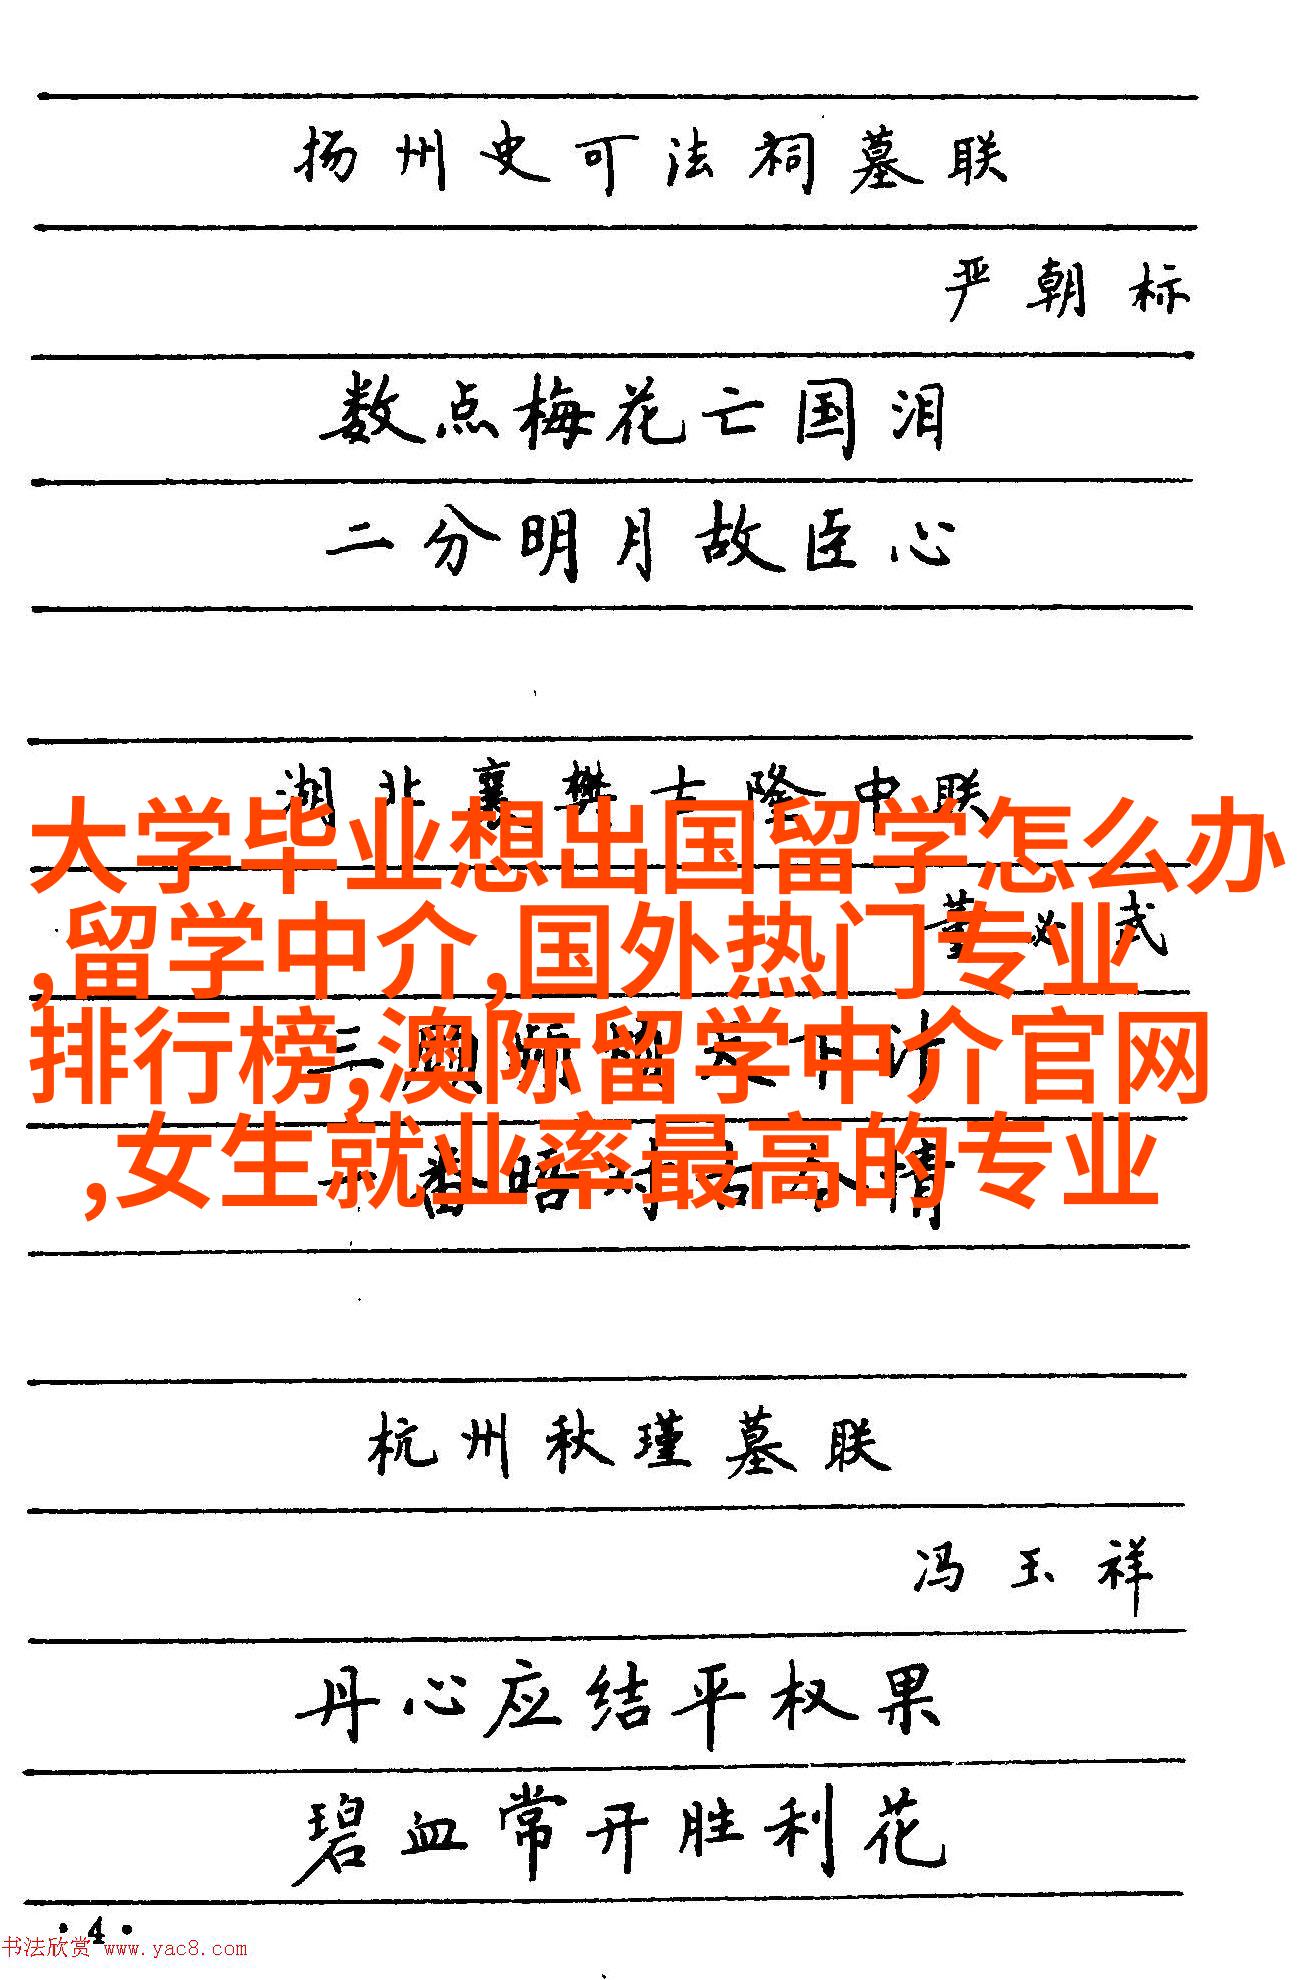 扬州史可法祠墓联
严朝标
数点梅花亡国泪
二分明月故臣心
湖北襄樊古隆中联
大学毕业想出国留学怎么办
董必武
,留学中介,国外热门专业
排行榜,澳际留学中介官网
三顾 天下计
,女生就业率最高的专业
一番晤对古今情
杭州秋瑾墓联
冯玉祥
丹心应结平权果
碧血常开胜利花
·4·
书法欣赏 www.yac8.com